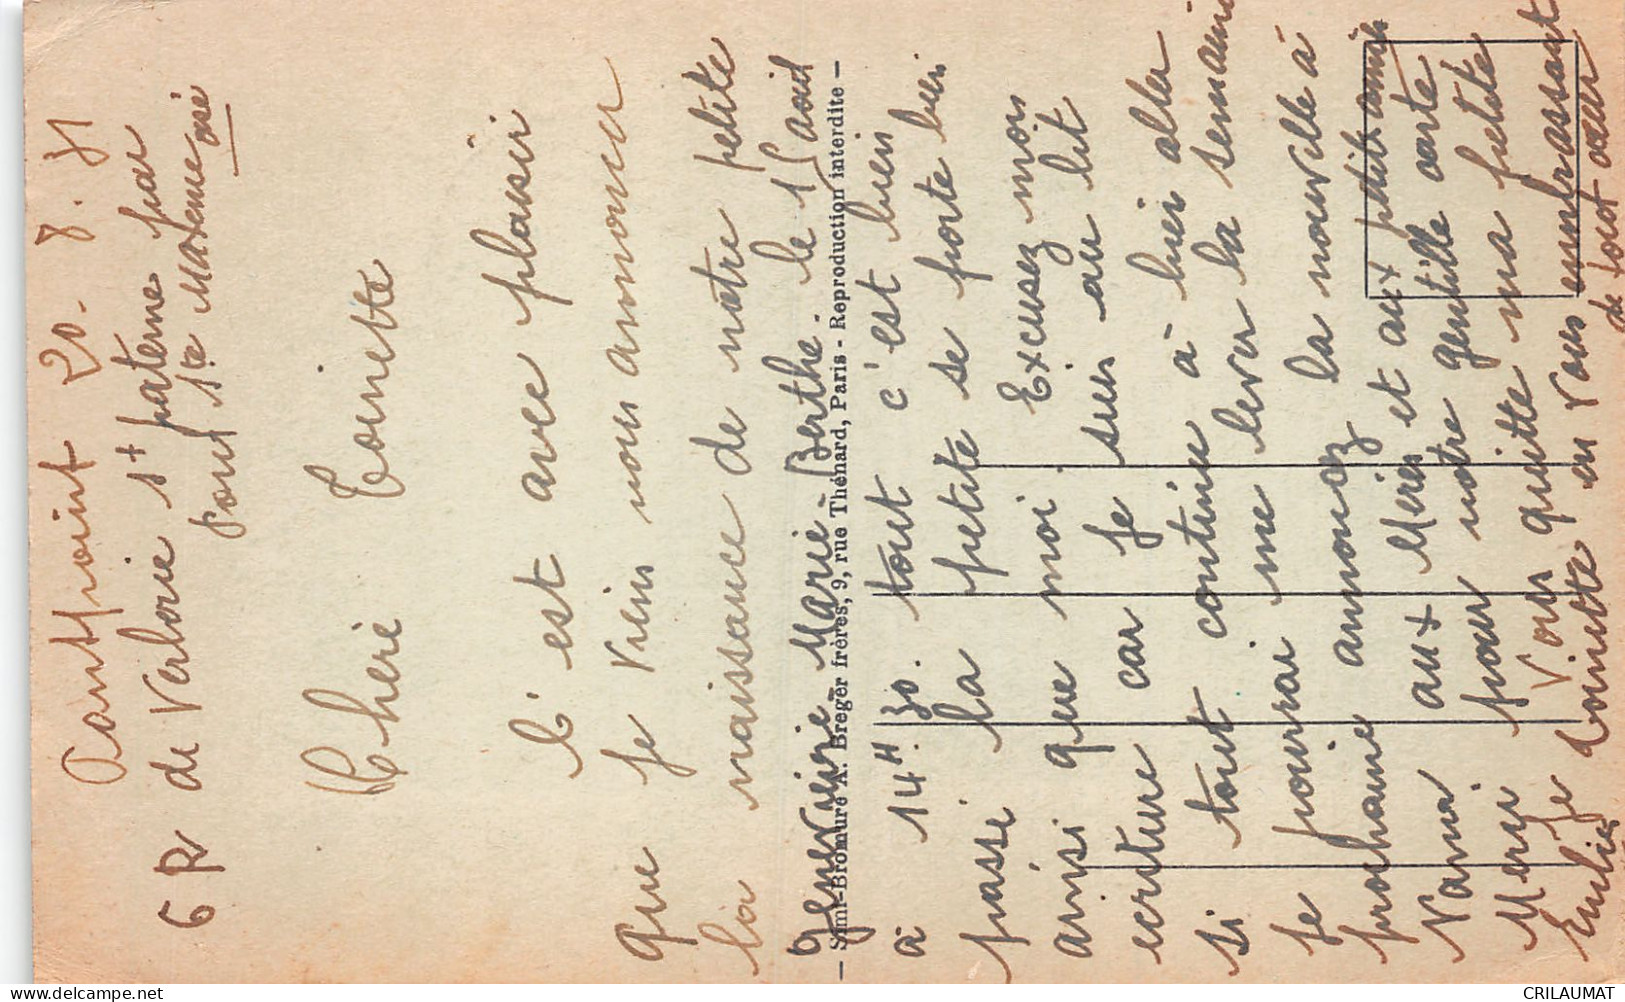 Pontpoint 20. 8. 51
6 R de Verberie St paterne par
Pont Ste Maxence
oise
Chère toinette
C'est avec plaisir
que je viens vous annoncer
la naissance de notre petite
Geneviève Marie-Berthe. le 15 août
— Simi-Bromure A. Breger frères, 9, rue Thénard, Paris - Reproduction interdite —
à 14H 30. tout c'est bien
passé la petite se porte bien
ainsi que moi. Excusez mon
ecriture car je suis au lit
si tout continu à bien aller
je pourrai me lever la semaine
prochaine annoncez la nouvelle à
aux Mères et aux petits amies
Merci pour votre gentille carte
je vous quitte ma petite
toinette en vous embrassant
de tout cœur